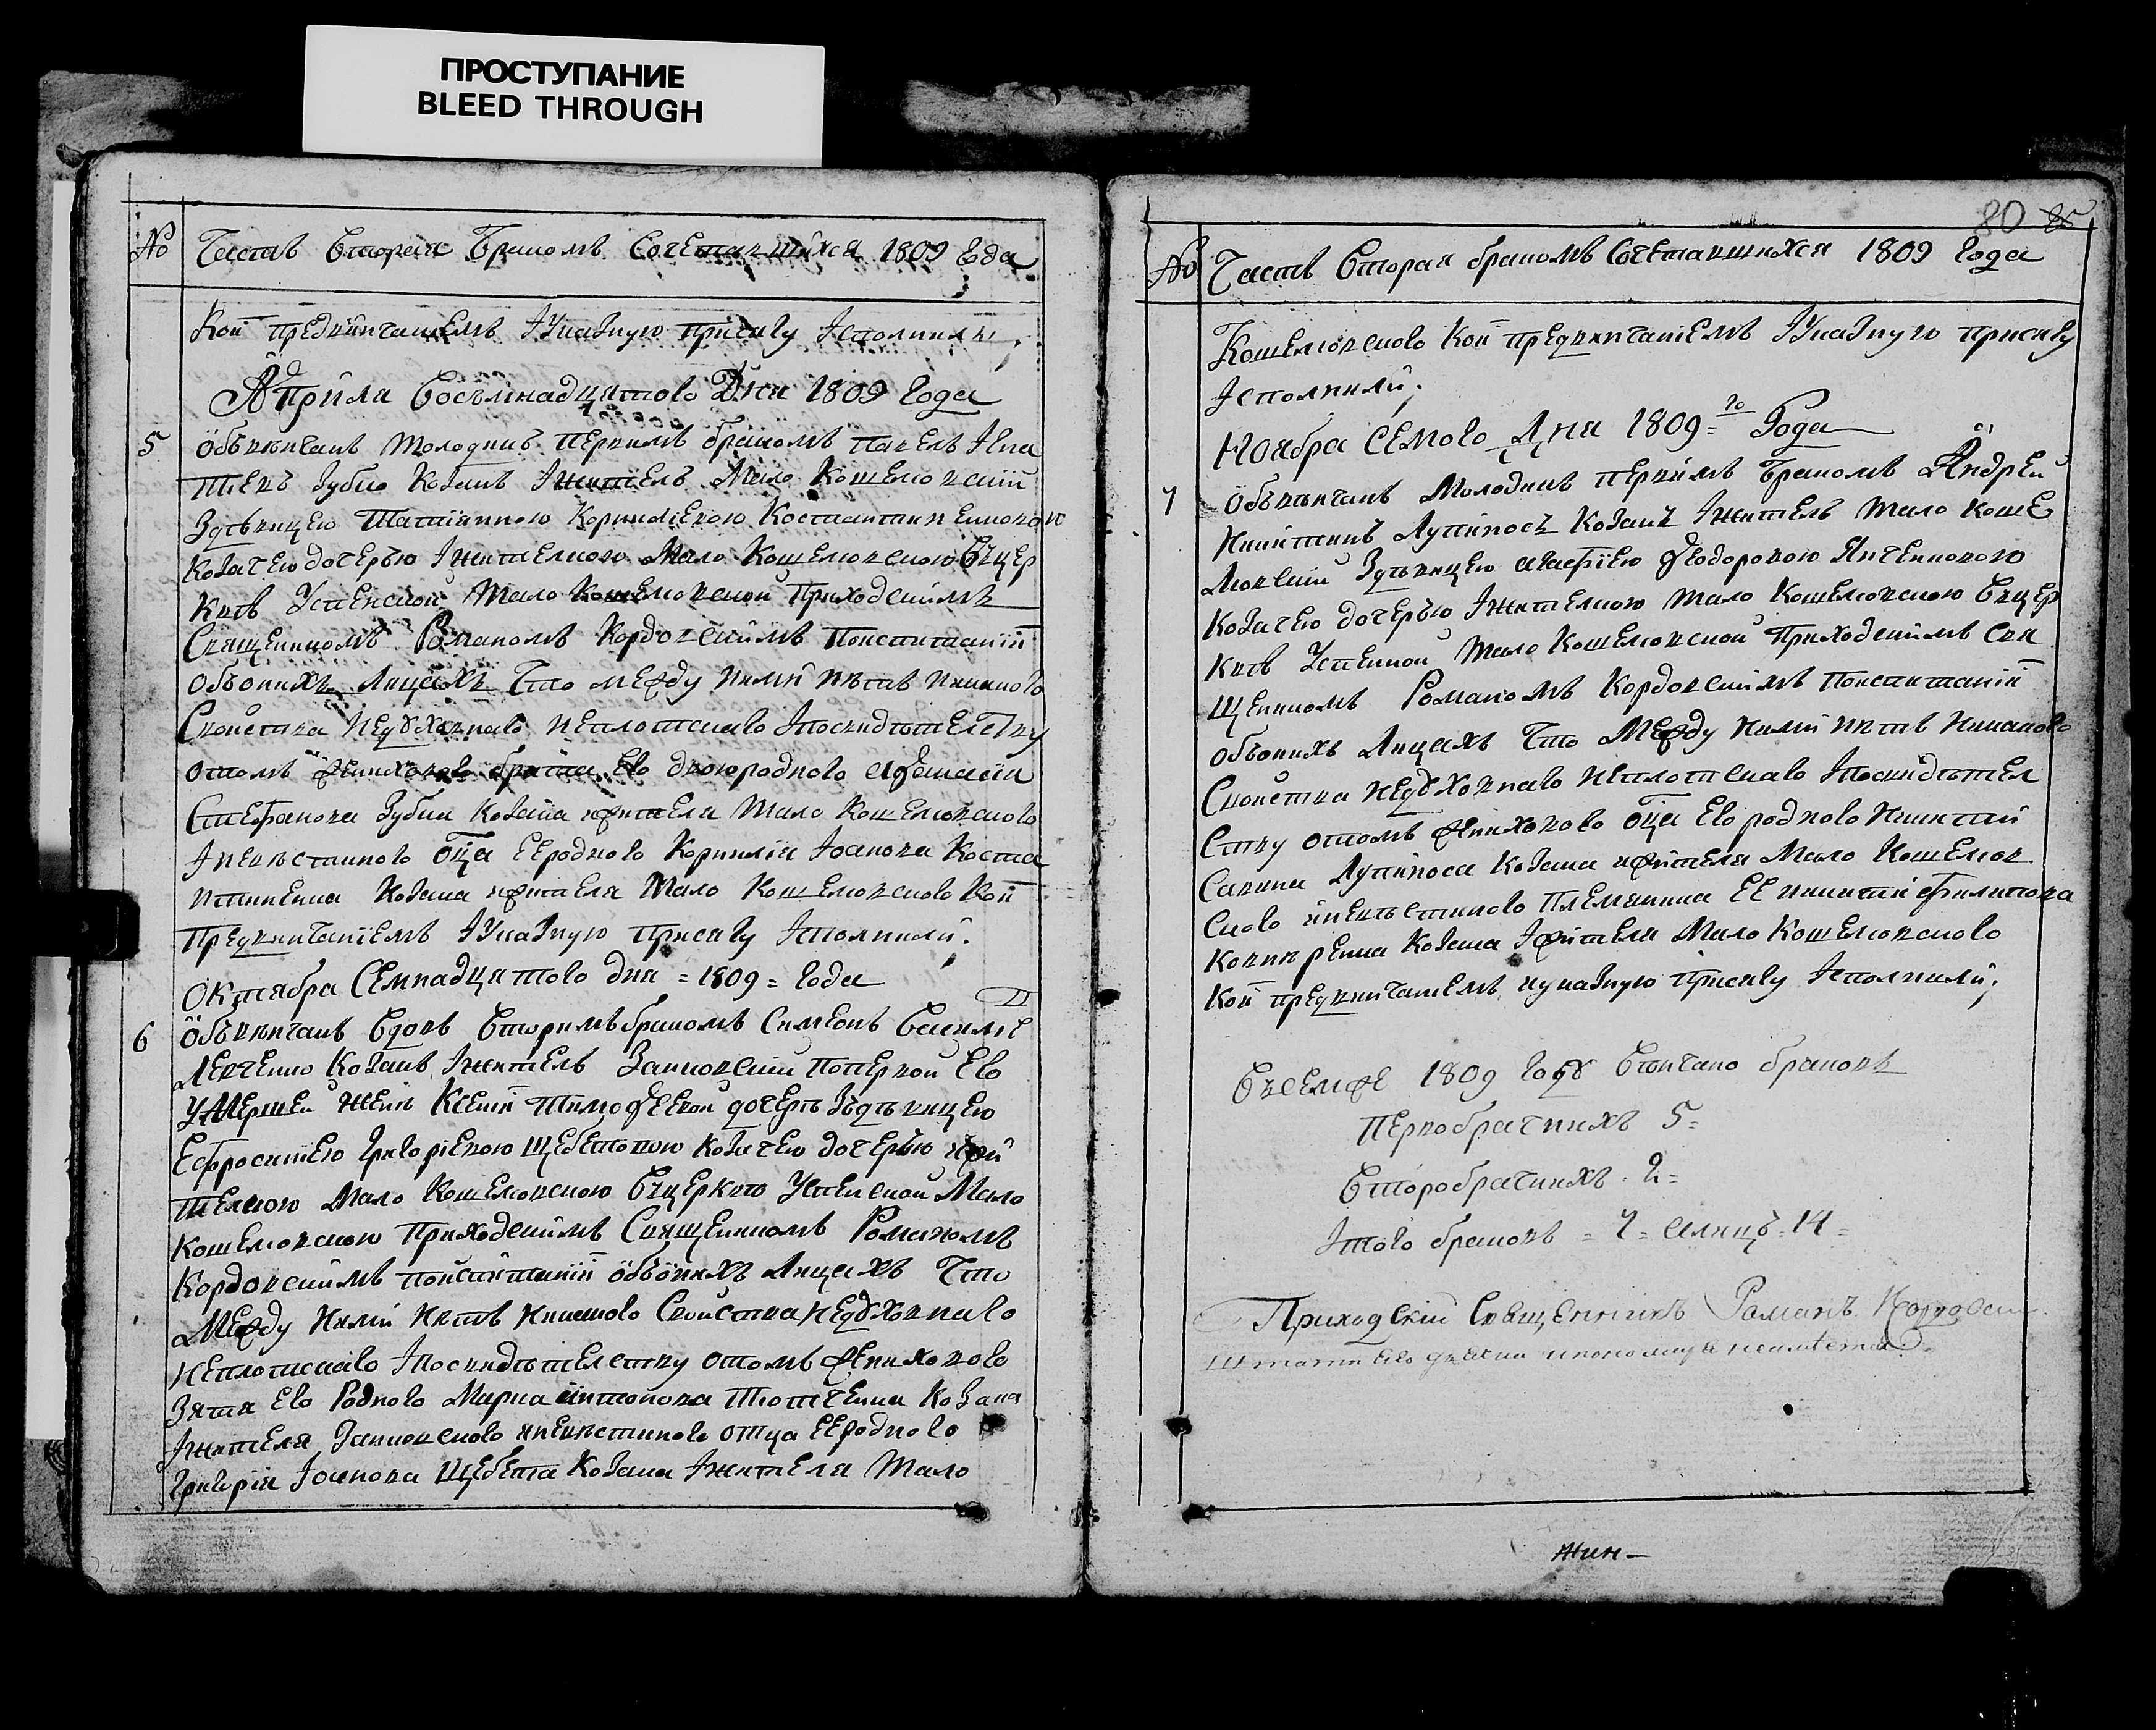 ПРОСТУПАНИЕ
BLEED THROUGH
№ Часть вторая Бракомъ Сочетавшихся 1809 года
Кои предвинчаниемъ Указную присягу Исполнили;
Априла восъмнадцятого Дня 1809 года
5 Обвѣнчанъ молодикъ первимъ бракомъ Павелъ Игна
тиевъ Зубко Козакъ Ижитель Мало Кошелювский
Здѣвицею Татиянною Корнилиевою Костантиненковою
козачею дочерью Ижителкою Мало Кошелювскою Вцер
квѣ Успенской Мало Кошелювской Приходскимъ
Священникомъ Романомъ Кордовскимъ Поиспитании
объонихъ Лицахъ Что между ними нѣтъ никакого
Свойства недуховнаго неплотскаго Ипосвидѣтелству
отомъ женихового брата его двоюродного
Стефанова Зубка Козака жителя Мало Кошелювского
Иневѣстиного Отца ееродного Корнилия Іоанова Коста
нтиненка Козака жителя Мало Кошелювского Кои
Предвинчаниемъ Указную Присягу Исполнили;
Октября Семнадцятого дня = 1809 = года
6 Обвѣнчанъ Вдовъ Вторимъ бракомъ Симеонъ
Левченко Козакъ Ижитель Попервой Его
умершей женѣ Ксении Тимофеевой дочерь Здѣвицею
Ефросиниею Григориевою Щебетовою Козачею дочерью жи
телкою Мало Кошелювскою Вцерквѣ Успенской Мало
Кошелювскою Приходскимъ Священникомъ Романомъ
Кордовскимъ поиспитании объонихъ Лицахъ Что
Между Ними Нетъ Никакого Свойства недуховнаго
неплотскаго Ипосвидѣтелству отомъ женихового
Зятя Его Родного Марка Антонова Козака
Ижителя иневѣстиного отца ееродного
Григория Іоанова Щебета Козака Ижителя Мало
80 85
№ Часть Вторая бракомъ Сочетавшихся 1809 года
Кошелювского Кои предвинчаниемъ Указную присягу
Исполнили;
Ноября семого Дня 1809=го Года
7 Обвѣнчанъ Молодикъ первимъ Бракомъ Андрей
Никитинъ Козакъ Ижитель Мало Коше
лювский Здѣвицею Агафиею Феодоровою
Козачею дочерью Ижителкою Мало Кошелювскою Вцер
квѣ Успенкой Мало Кошелювской Приходскимъ Свя
щенникомъ Романомъ Кордовскимъ Поиспитании
объонихъ Лицахъ Что Между Ними нѣтъ Никакого
Свойства недуховнаго неплотскаго Ипосвидѣтел
ству отомъ женихового Отца его родного Никити
Савина Козака жителя Мало Кошелюв
ского иневѣстиного Племянника Ее никити Филипова
Козака Ижителя Мало Кошелювского
Кои предвинчаниемъ Указную Присягу Исполнили;
Всемже 1809 году Вѣнчано браковъ
первобрачнихъ 5=
Второбрачнихъ 2=
Итого браковъ = 7 = алицъ = 14 =
Приходский Священникъ Романъ
жин-